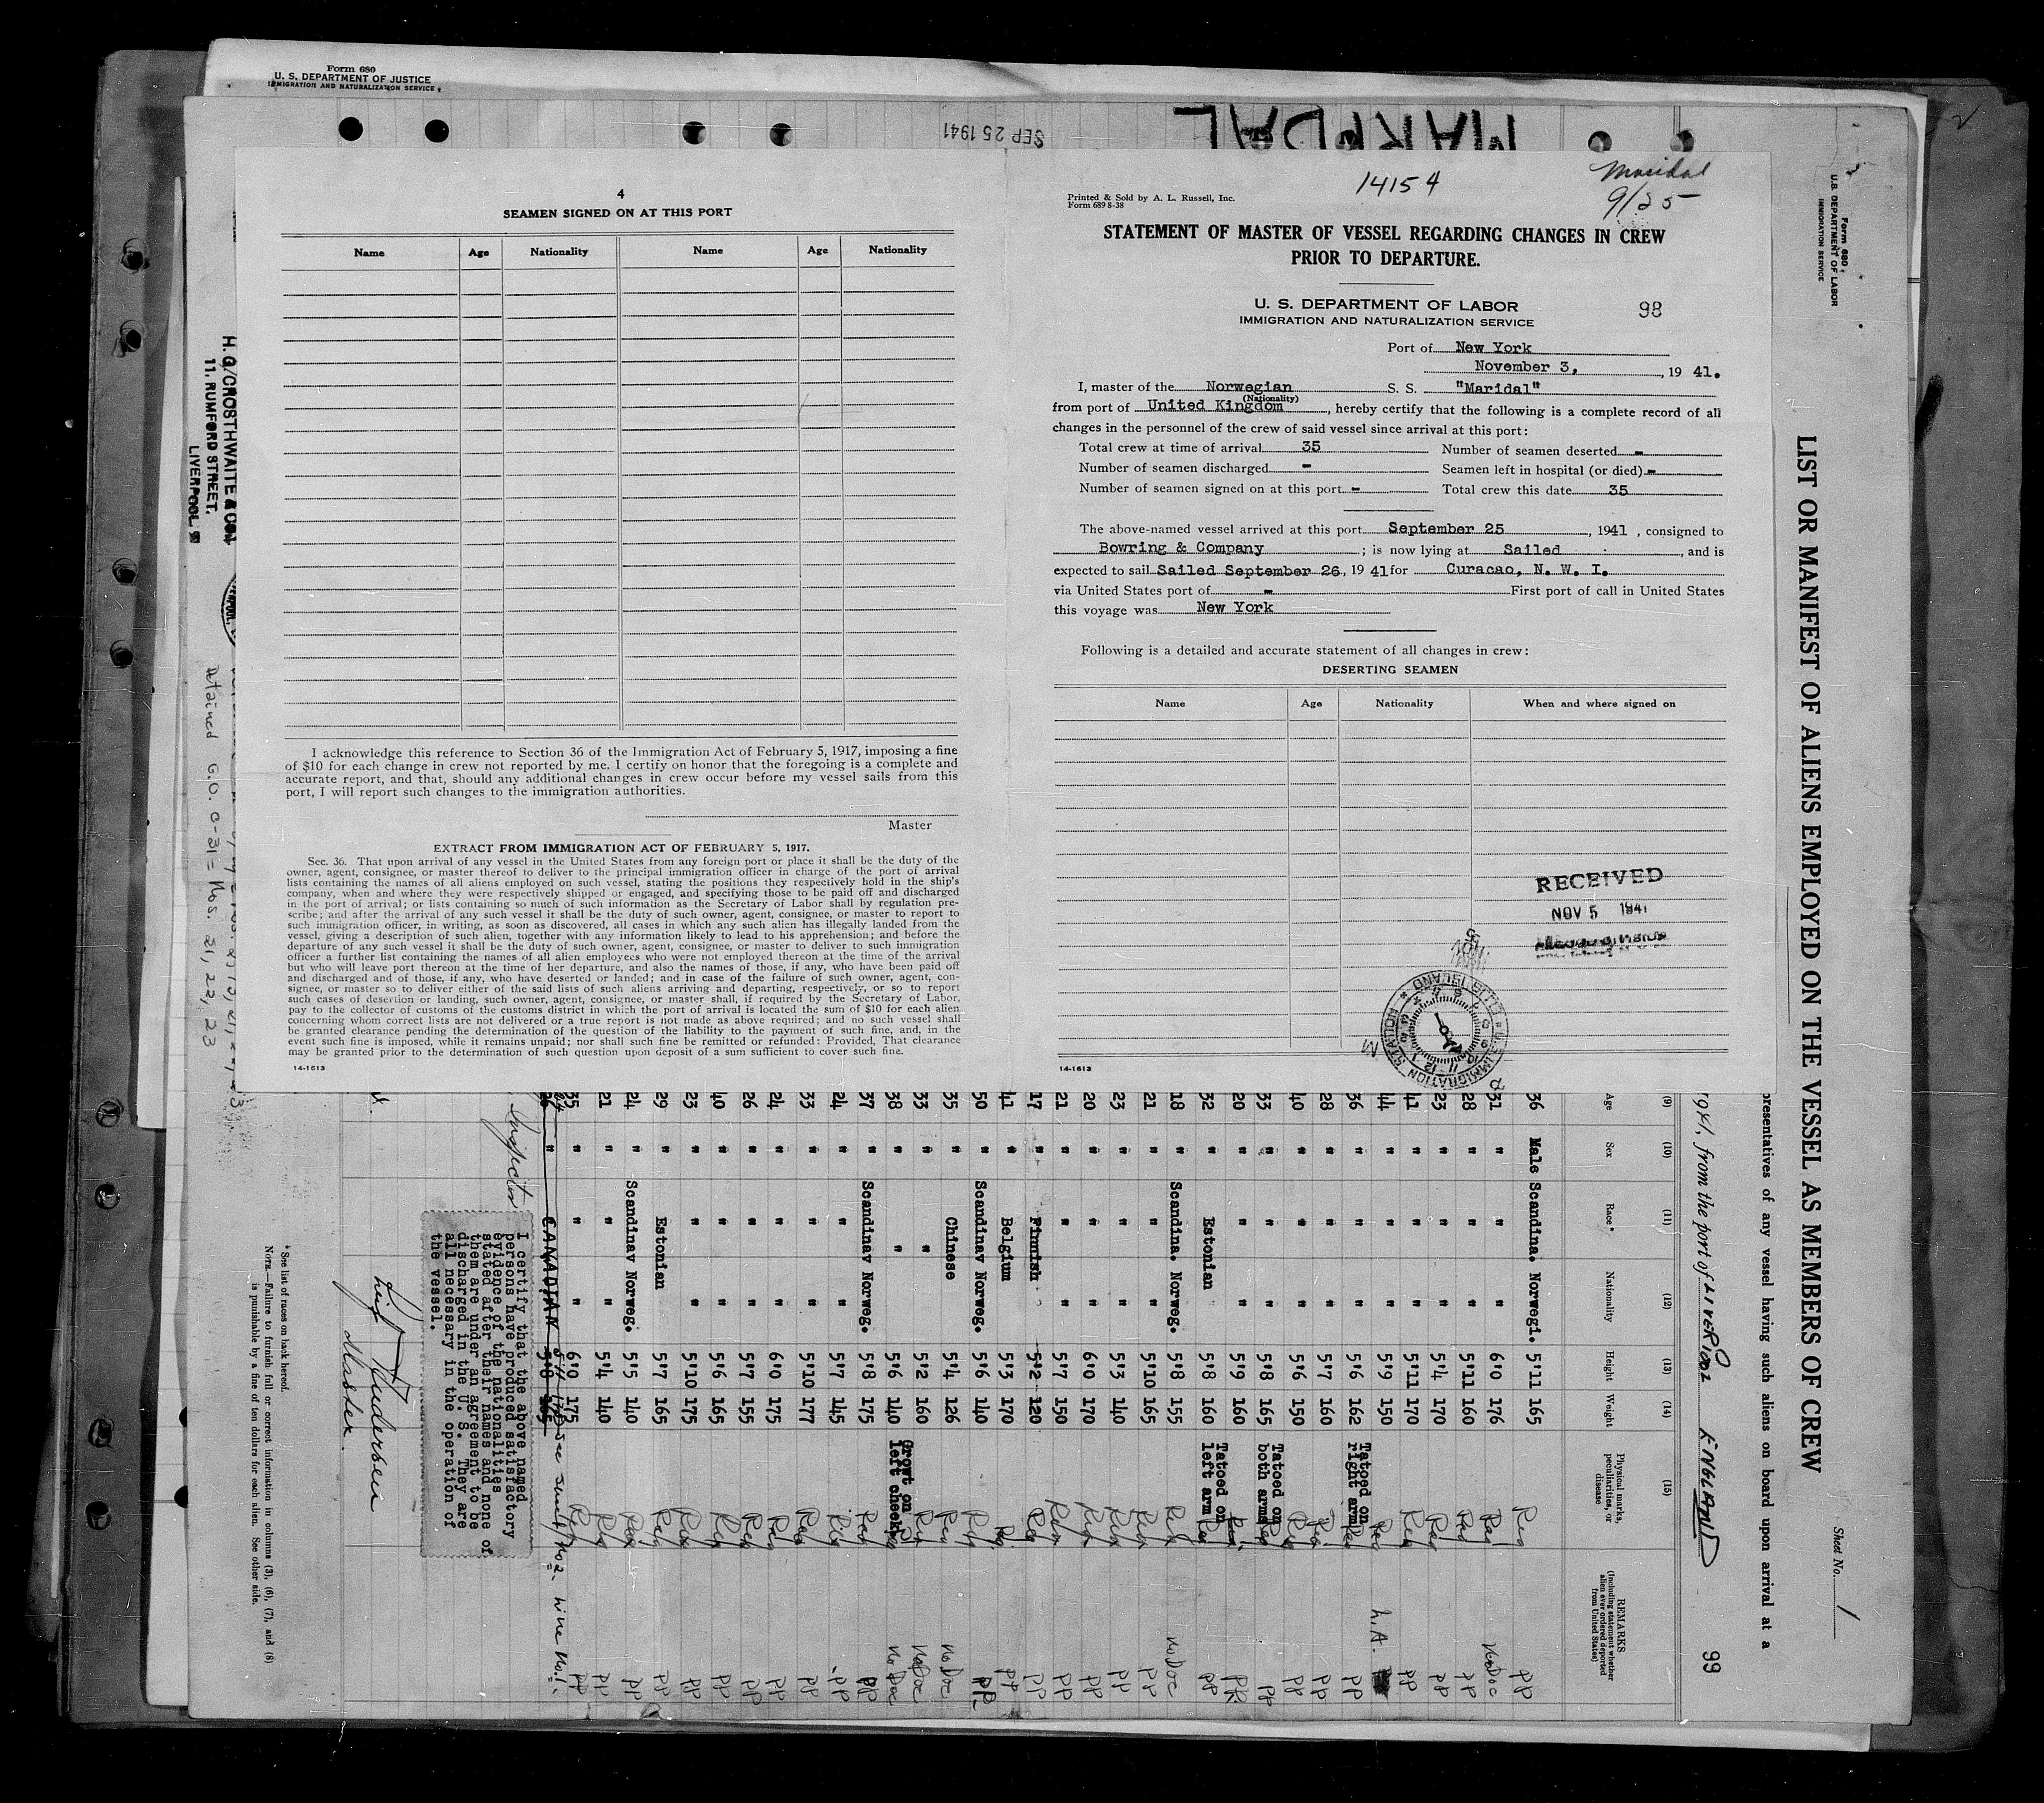 Form 680
U. S. DEPARTMENT OF JUSTICE
IMMIGRATION AND NATURALIZATION SERVICE
SEP 25 1941
MARIDAL
4
SEAMEN SIGNED ON AT THIS PORT
Name Age Nationality Name Age Nationality
I acknowledge this reference to Section 36 of the Immigration Act of February 5, 1917, imposing a fine
of $10 for each change in crew not reported by me. I certify on honor that the foregoing is a complete and
accurate report, and that, should any additional changes in crew occur before my vessel sails from this
port, I will report such changes to the immigration authorities.
Master
EXTRACT FROM IMMIGRATION ACT OF FEBRUARY 5, 1917.
Sec. 36. That upon arrival of any vessel in the United States from any foreign port or place it shall be the duty of the
owner, agent, consignee, or master thereof to deliver to the principal immigration officer in charge of the port of arrival
lists containing the names of all aliens employed on such vessel, stating the positions they respectively hold in the ship's
company, when and where they were respectively shipped or engaged, and specifying those to be paid off and discharged
in the port of arrival; or lists containing so much of such information as the Secretary of Labor shall by regulation pre-
scribe; and after the arrival of any such vessel it shall be the duty of such owner, agent, consignee, or master to report to
such immigration officer, in writing, as soon as discovered, all cases in which any such alien has illegally landed from the
vessel, giving a description of such alien, together with any information likely to lead to his apprehension; and before the
departure of any such vessel it shall be the duty of such owner, agent, consignee, or master to deliver to such immigration
officer a further list containing the names of all alien employees who were not employed thereon at the time of the arrival
but who will leave port thereon at the time of her departure, and also the names of those, if any, who have been paid off
and discharged and of those, if any, who have deserted or landed; and in case of the failure of such owner, agent, con-
signee, or master so to deliver either of the said lists of such aliens arriving and departing, respectively, or so to report
such cases of desertion or landing, such owner, agent, consignee, or master shall, if required by the Secretary of Labor,
pay to the collector of customs of the customs district in which the port of arrival is located the sum of $10 for each alien
concerning whom correct lists are not delivered or a true report is not made as above required; and no such vessel shall
be granted clearance pending the determination of the question of the liability to the payment of such fine, and, in the
event such fine is imposed, while it remains unpaid; nor shall such fine be remitted or refunded: Provided, That clearance
may be granted prior to the determination of such question upon deposit of a sum sufficient to cover such fine.
14-1613
14154
Maridal
9/25
Printed & Sold by A. L. Russell, Inc.
Form 689 8-38
STATEMENT OF MASTER OF VESSEL REGARDING CHANGES IN CREW
PRIOR TO DEPARTURE.
U. S. DEPARTMENT OF LABOR
98
IMMIGRATION AND NATURALIZATION SERVICE
Port of New York
November 3, , 19 41.
I, master of the Norwegian S. S. "Maridal"
(Nationality)
from port of United Kingdom , hereby certify that the following is a complete record of all
changes in the personnel of the crew of said vessel since arrival at this port:
Total crew at time of arrival 35 Number of seamen deserted -
Number of seamen discharged - Seamen left in hospital (or died) -
Number of seamen signed on at this port - Total crew this date 35
The above-named vessel arrived at this port September 25 , 1941 , consigned to
Bowring & Company ; is now lying at Sailed , and is
expected to sail Sailed September 26 , 19 41 for Curacao, N. W. I.
via United States port of - First port of call in United States
this voyage was New York
Following is a detailed and accurate statement of all changes in crew:
DESERTING SEAMEN
Name Age Nationality When and where signed on
RECEIVED
NOV 5 1941
U.S. IMMIGRATION STATION ELLIS ISLAND
14-1613
Form 680
U.S. DEPARTMENT OF LABOR
IMMIGRATION SERVICE
LIST OR MANIFEST OF ALIENS EMPLOYED ON THE VESSEL AS MEMBERS OF CREW
Sheet No. 1
presentatives of any vessel having such aliens on board upon arrival at a
1941, from the port of LIVERPOOL ENGLAND
99
(9) (10) (11) (12) (13) (14) (15)
Age Sex Race* Nationality Height Weight Physical marks, peculiarities, or disease REMARKS (Including statement whether alien ever ordered deported from United States)
36 Male Scandina. Norwegi. 5'11 165 Reg PP
31 " " " 6'0 176 Reg No Doc
28 " " " 5'11 160 Reg PP
23 " " " 5'4 170 Reg PP
41 " " " 5'11 170 Reg PP
44 " " " 5'9 150 Reg L.A.
36 " " " 5'6 162 Tatoed on right arm Reg PP
28 " " " 5'7 160 Reg PP
40 " " " 5'6 150 Reg PP
33 " " " 5'8 165 Tatoed on both arms Reg PP
20 " " " 5'9 160 Reg PP
32 " Estonian 5'8 160 Tatoed on left arm Reg PP
18 " Scandina. Norweg. 5'8 155 Reg No Doc
21 " " " 5'10 165 Reg PP
23 " " " 5'3 140 Reg PP
20 " " " 6'0 170 Reg PP
21 " " " 5'7 150 Reg PP
17 " Finnish 5'2 120 Reg PP
41 " Belgium 5'3 170 Reg PP
50 " Scandinav Norweg. 5'6 140 Reg PP
35 " Chinese 5'4 126 Reg No Doc
33 " " 5'2 160 Reg No Doc
38 " " 5'6 140 Growt on left cheek Reg No Doc
37 " Scandinav Norweg. 5'8 175 Reg PP
24 " " " 5'7 145 Reg PP
33 " " " 5'10 177 Reg PP
24 " " " 6'0 175 Reg PP
26 " " " 5'7 155 Reg PP
40 " " " 5'6 165 Reg PP
23 " " " 5'10 175 Reg PP
29 " Estonian 5'7 165 Reg PP
24 " Scandinav Norweg. 5'5 140 Reg PP
21 " " " 5'4 140 Reg PP
35 " " " 6'0 175 Reg PP
" CANADIAN 5'8 See sheet No 2. Line No. 1.
I certify that the above named
persons have produced satisfactory
evidence of the nationalities
stated after their names and none of
them are under an agreement to be
discharged in the U. S. They are
all necessary in the operation of
the vessel.
Inspector
Master.
* See list of races on back hereof.
NOTE.—Failure to furnish full or correct information in columns (3), (6), (7), and (8)
is punishable by a fine of ten dollars for each alien. See other side.
H. G. CROSTHWAITE & CO.
11, RUMFORD STREET,
LIVERPOOL
Detained G.O. C-31 = Nos. 21, 22, 23